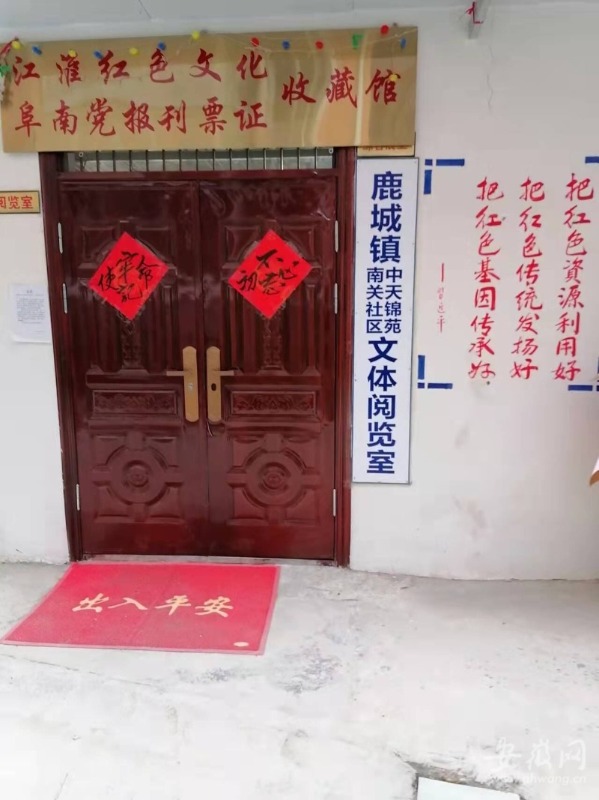 江淮红色文化
阜南党报刊票证
收藏馆
阅览室
不忘初心
牢记使命
鹿城镇
中天锦苑
南关社区
文体阅览室
把红色資源利用好
把红色传统发扬好
把红色基因传承好.
——習近平
出入平安
安徽网